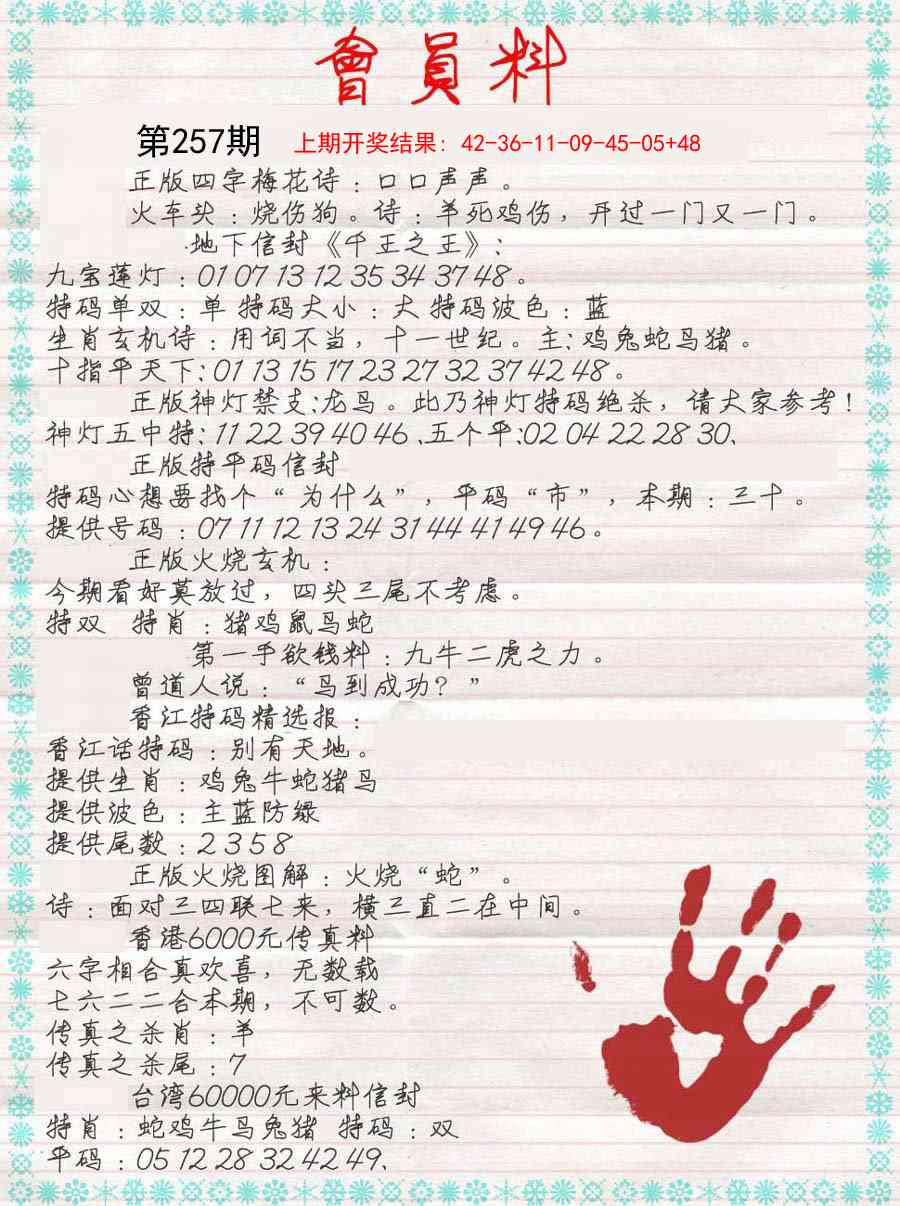 會員料
第257期 上期开奖结果: 42-36-11-09-45-05+48
正版四字梅花诗：口口声声。
火车头：烧伤狗。诗：羊死鸡伤，开过一门又一门。
地下信封《千王之王》:
九宝莲灯：01 07 13 12 35 34 37 48。
特码单双：单 特码大小：大 特码波色：蓝
生肖玄机诗：用词不当，十一世纪。主: 鸡兔蛇马猪。
十指平天下: 01 13 15 17 23 27 32 37 42 48。
正版神灯禁支:龙马。此乃神灯特码绝杀，请大家参考！
神灯五中特: 11 22 39 40 46、五个平:02 04 22 28 30、
正版特平码信封
特码心想要找个“为什么”，平码“市”，本期：三十。
提供号码：07 11 12 13 24 31 44 41 49 46。
正版火烧玄机：
今期看好莫放过，四头三尾不考虑。
特双 特肖：猪鸡鼠马蛇
第一手欲钱料：九牛二虎之力。
曾道人说：“马到成功？”
香江特码精选报：
香江话特码：别有天地。
提供生肖：鸡兔牛蛇猪马
提供波色：主蓝防绿
提供尾数：2 3 5 8
正版火烧图解：火烧“蛇”。
诗：面对三四联七来，横三直二在中间。
香港6000元传真料
六字相合真欢喜，无数载
七六二二合本期，不可数。
传真之杀肖：羊
传真之杀尾：7
台湾60000元来料信封
特肖：蛇鸡牛马兔猪 特码：双
平码：05 12 28 32 42 49、